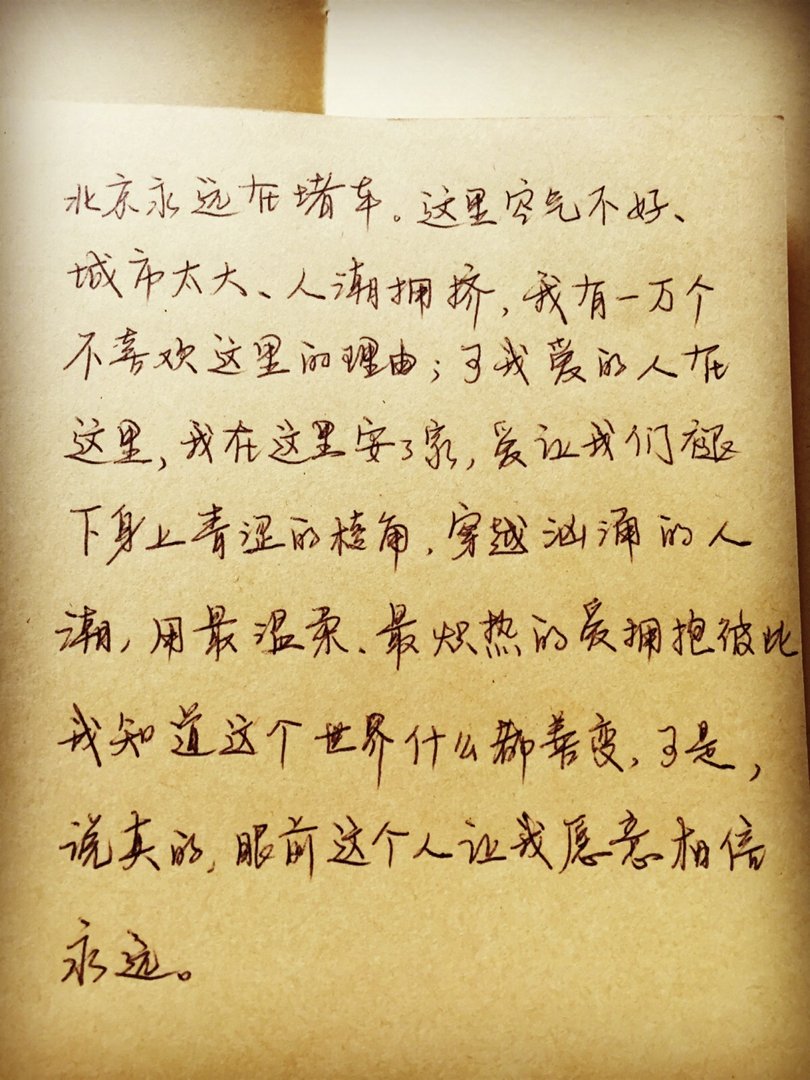 北京永远在堵车。这里空气不好、
城市太大、人潮拥挤，我有一万个
不喜欢这里的理由；可我爱的人在
这里，我在这里安了家，爱让我们褪
下身上青涩的棱角，穿越汹涌的人
潮，用最温柔、最炽热的爱拥抱彼此
我知道这个世界什么都善变，可是，
说真的，眼前这个人让我愿意相信
永远。